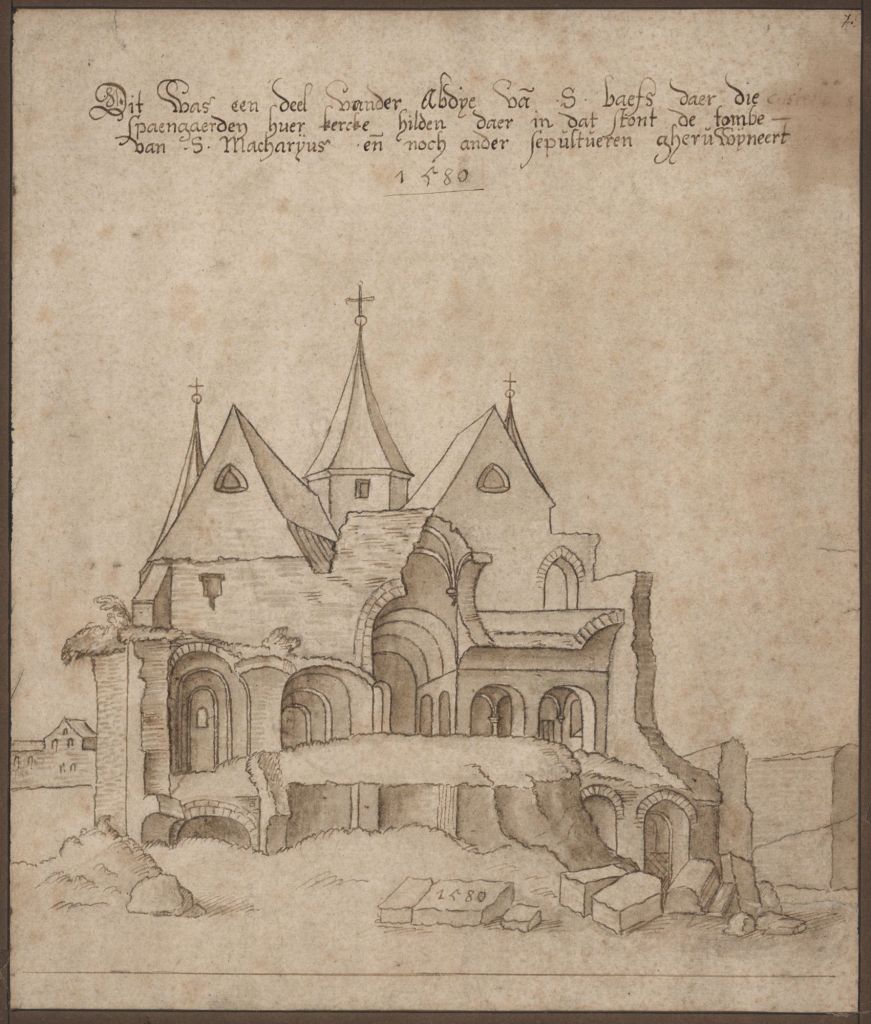 7.
Dit Was een deel vander Abdye vã .S. baefs daer die
spaengaerden huer kercke hilden daer in dat stont de tombe –
van .S. Macharyus en̄ noch ander sepultueren gheruwyneert
1580
1580